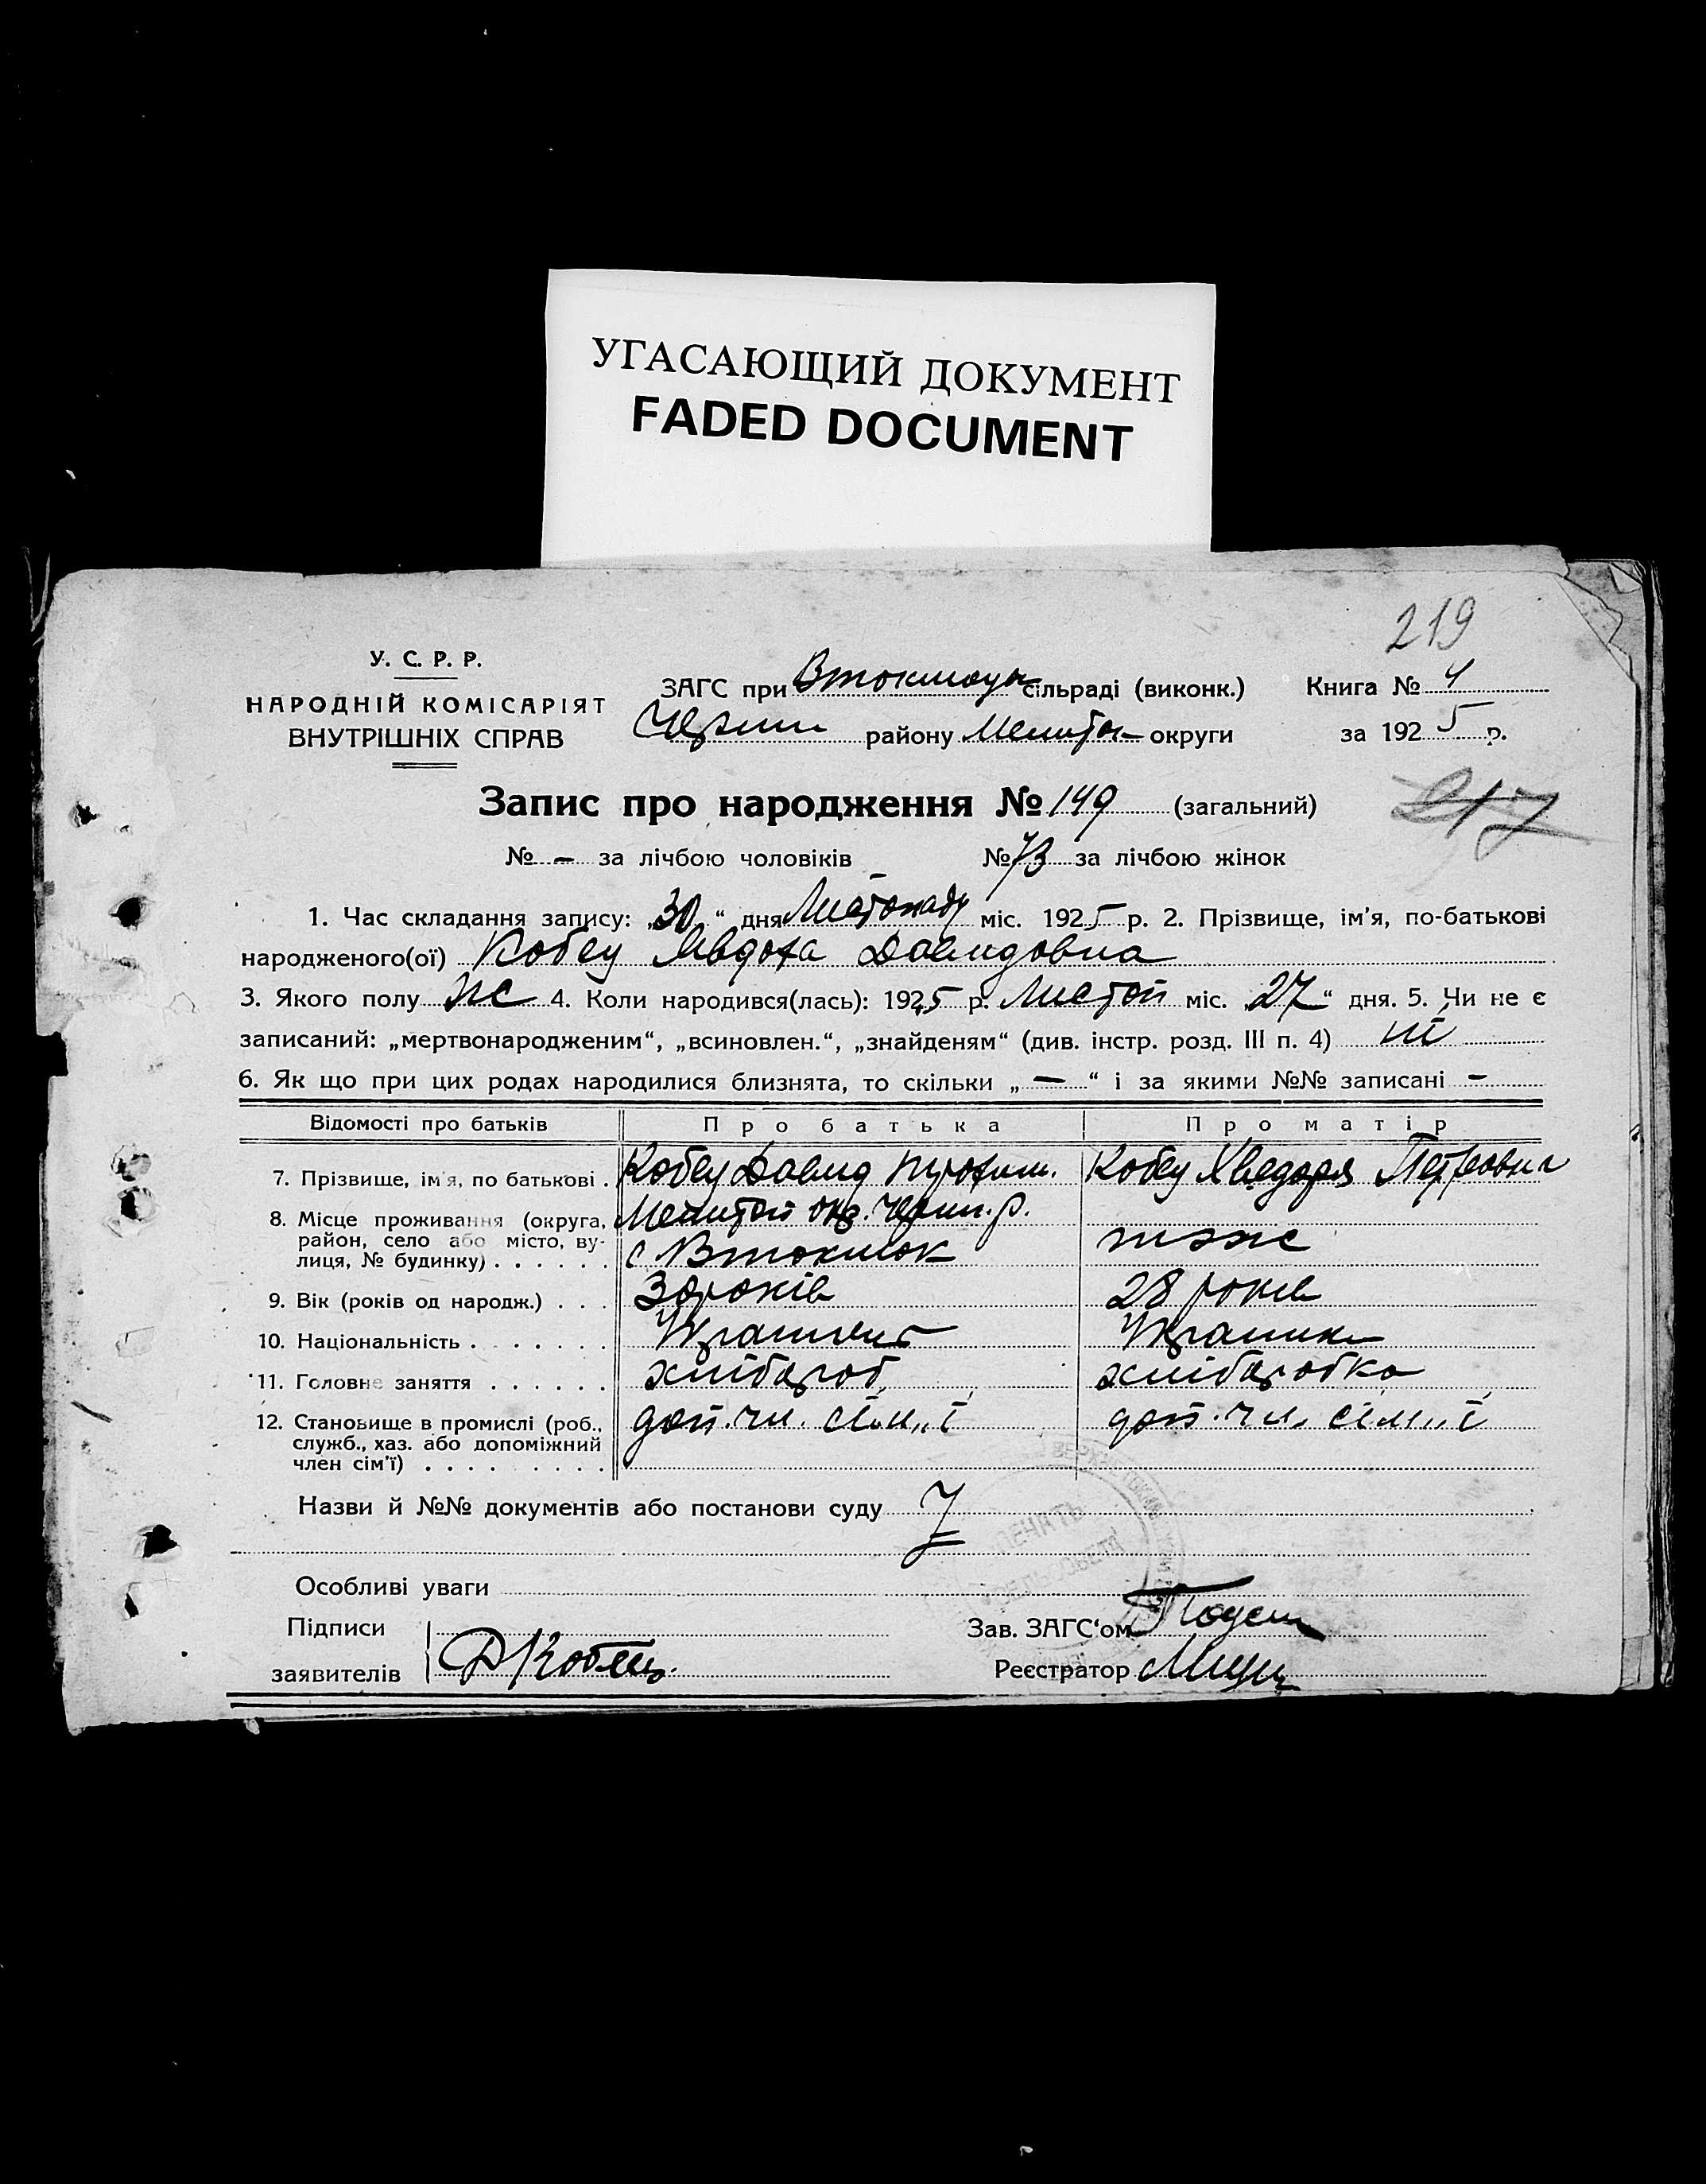 УГАСАЮЩИЙ ДОКУМЕНТ
FADED DOCUMENT
219
У. С. Р. Р.
НАРОДНІЙ КОМІСАРІЯТ
ВНУТРІШНІХ СПРАВ
ЗАГС при сільраді (виконк.) Книга № 4
району округи за 1925 р.
Запис про народження № 149 (загальний)
217
№ — за лічбою чоловіків № 73 за лічбою жінок
1. Час складання запису: „30“ дня Листопаду міс. 1925 р. 2. Прізвище, ім’я, по-батькові
народженого(ої) Кобец Явдоха Давидовна
3. Якого полу ж 4. Коли народився(лась): 1925 р. Листоп міс. 27“ дня. 5. Чи не є
записаний: „мертвонародженим“, „всиновлен.“, „знайденям“ (див. інстр. розд. III п. 4) ні
6. Як що при цих родах народилися близнята, то скільки „—“ і за якими №№ записані —
Відомості про батьків Про батька Про матір
7. Прізвище, ім’я, по батькові . Кобец Давид Кобец Петровна
8. Місце проживання (округа, район, село або місто, вулиця, № будинку) . . . . . . Мелитоп окр. р.
с Втокмак
9. Вік (років од народж.) . . . 30 років 28 років
10. Національність . . . . . . .
11. Головне заняття . . . . . . хлібороб хліборобка
12. Становище в промислі (роб.,
служб., хаз. або допоміжний
член сім’ї) . . . . . . . . . доп. чл. сім"ї доп. чл. сім"ї
Назви й №№ документів або постанови суду
ПЕЧАТЬ
Особливі уваги
Підписи
заявителів Д Кобець
Зав. ЗАГС‘ом
Реєстратор